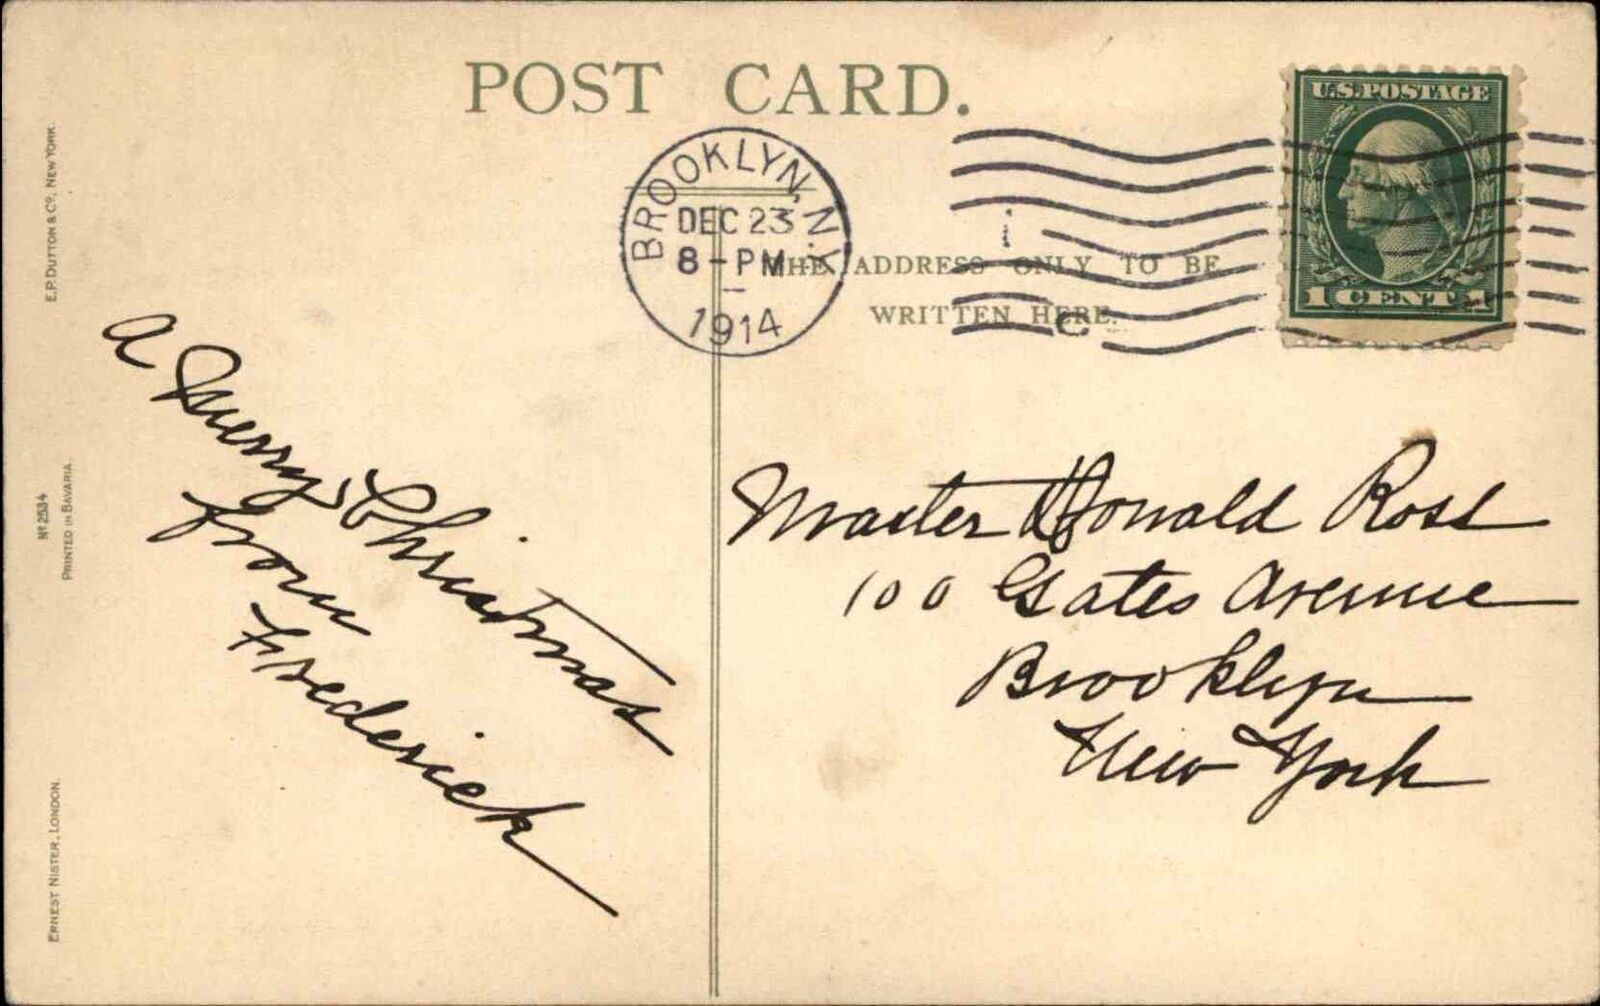 POST CARD.
U.S. POSTAGE
1 CENT 1
BROOKLYN, N.Y.
DEC 23
8-PM
1914
THE ADDRESS ONLY TO BE
WRITTEN HERE.
E.P. DUTTON & Co. NEW YORK
No 2534
PRINTED IN BAVARIA.
ERNEST NISTER, LONDON.
A Merry Christmas
from
Frederick
Master Donald Ross
100 Gates Avenue
Brooklyn
New York